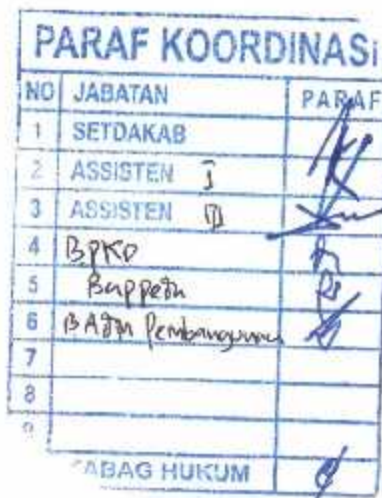 PARAF KOORDINASi
NO JABATAN PARAF
1 SETDAKAB
2 ASSISTEN I
3 ASSISTEN III
4 BPKD
5 Bappeda
6 B Adm Pembangunan
7
8
9
KABAG HUKUM